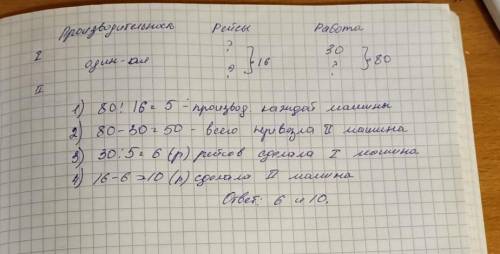 Производительность Рейсы Работа
I ? 30
один-ая ? } 16 ? } 80
II
1) 80 : 16 = 5 - производ каждой машины
2) 80 - 30 = 50 - всего перевезла II машина
3) 30 : 5 = 6 (р) рейсов сделала I машина
4) 16 - 6 = 10 (р) сделала II машина
Ответ: 6 и 10.